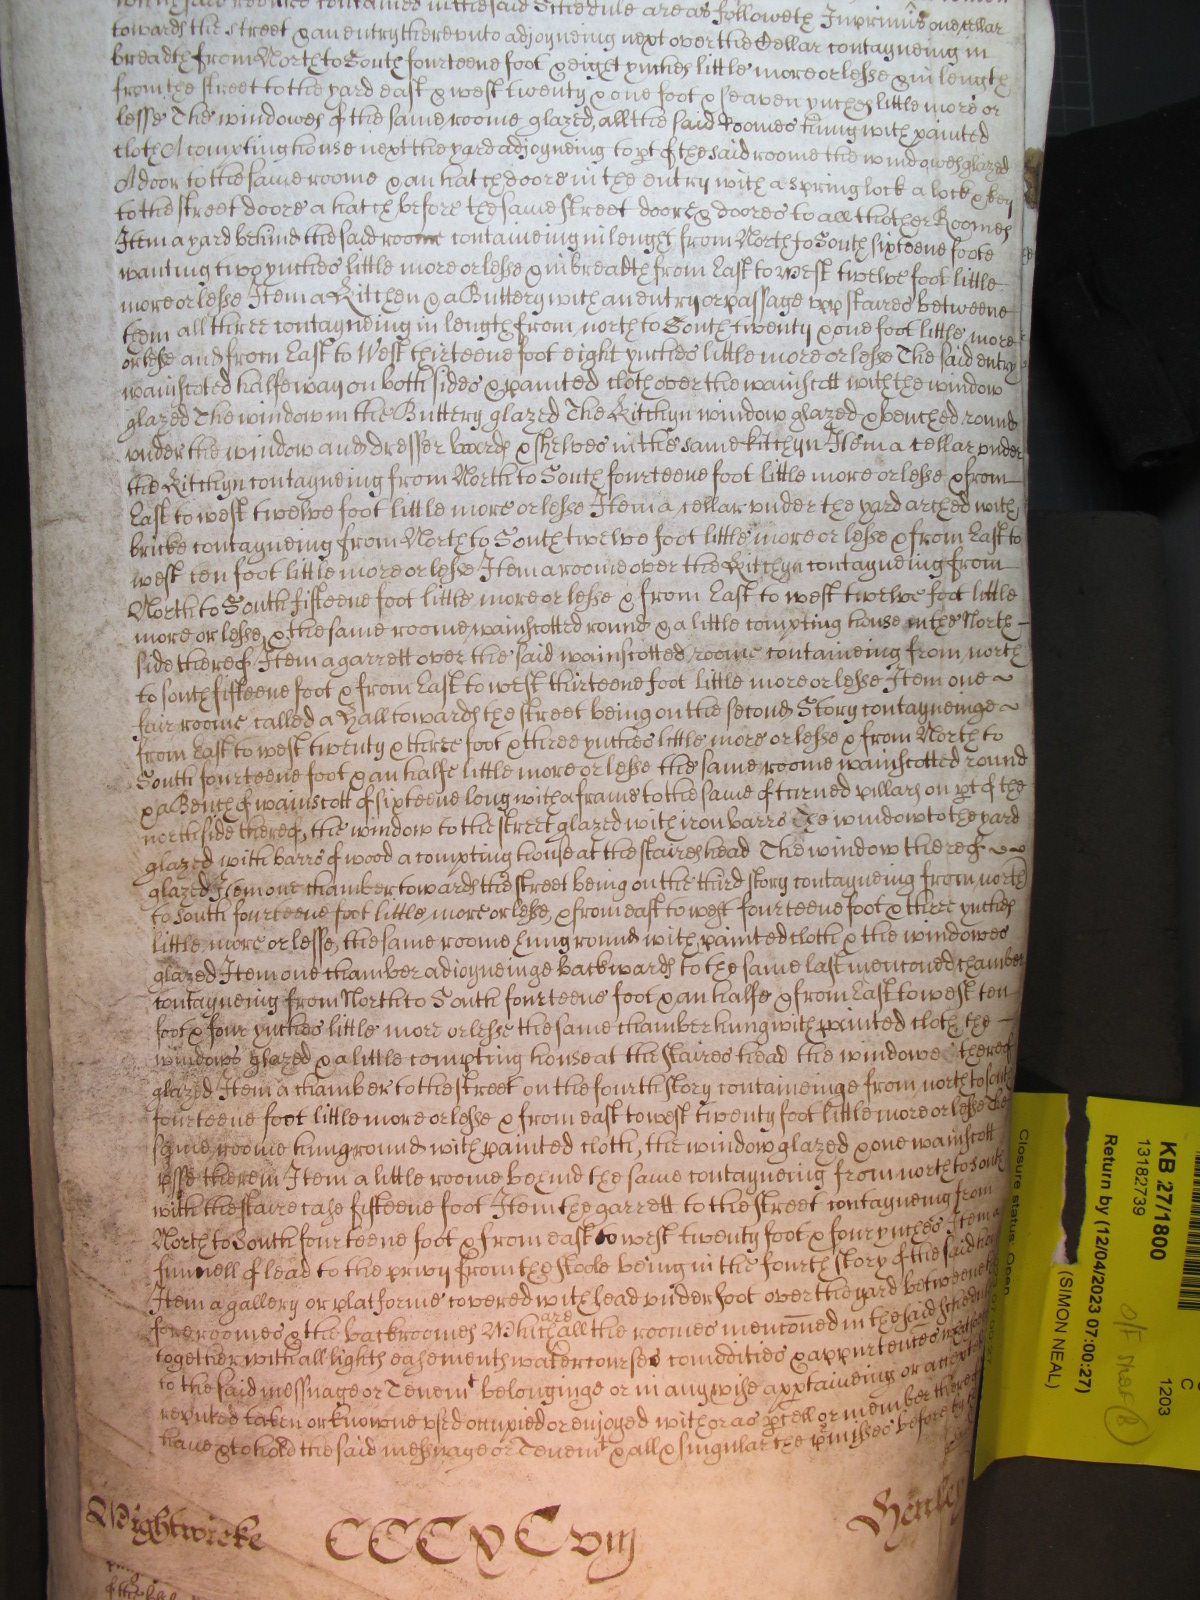 contained in the said Schedule are as followeth Inprimis one cellar
towards the street & an entry thereunto adjoyneing next over the Cellar contayneing in
breadth from North to South fourteene foot & eight ynches little more or lesse & in length
from the street to the yard east & west twenty & one foot & seaven ynches little more or
lesse The windowes of the same roome glazed, all the said Roomes hung with painted
cloth A compting house next the yard adjoyneing to pt of the said roome the windowes glazed
A door to the same roome & an hatch doore in the entry with a spring lock a lock & key
to the street doore a hatch before the same street doore & doores to all thother Roomes
Item a yard behind the said roome containeing in lenght from North to South sixteene foote
wanting two ynches little more or lesse & in breadth from East to West twelve foot little
more or lesse Item a Kitchen & a Buttery with an entry or passage upp staires betweene
them all three contayneing in length from north to South twenty & one foot little more
or lesse and from East to West thirteene foot eight ynches little more or lesse The said entry
wainscoted halfe way on both sides & painted cloth over the wainscott with the window
glazed The window in the Buttery glazed The Kitchyn window glazed & benched round
under the window and dresser boards & shelves in the same kitchyn Item a cellar under
the Kitchyn contayneing from North to South fourteene foot little more or lesse & from
East to west twelve foot little more or lesse Item a cellar under the yard arched with
bricke contayneing from North to South twelve foot little more or lesse & from East to
west ten foot little more or lesse Item a roome over the Kitchyn contayneing from
North to South fifteene foot little more or lesse & from East to west twelve foot little
more or lesse, & the same roome wainscotted round & a little compting house on the North
side thereof Item a garrett over the said wainscotted roome containeing from north
to south fifteene foot & from East to west thirteene foot little more or lesse Item one
fair roome called a Hall towards the street being on the second Story contayneinge
from East to west twenty & three foot & three ynches little more or lesse & from North to
South fourteene foot & an halfe little more or lesse the same roome wainscotted round
& a Bench of wainscott of sixteene long with a frame to the same of turned pillars on pt of the
north side thereof, the window to the street glazed with iron barrs The window to the yard
glazed with barrs of wood a compting house at the staires head The window thereof
glazed Item one chamber towards the street being on the third story contayneing from north
to South fourteene foot little more or lesse, & from east to west fourteene foot & three ynches
little more or lesse, the same roome hung round with painted cloth & the windowes
glazed Item one chamber adjoyneinge backwards to the same last mencioned chamber
contayneing from North to South fourteene foot & an halfe & from East to west ten
foot & four ynches little more or lesse the same chamber hung with painted cloth the
windows glazed & a little compting house at the staires head the windowe thereof
glazed Item a chamber to the street on the fourth story containeinge from north to south
fourteene foot little more or lesse & from east to west twenty foot little more or lesse the
same roome hung round with painted cloth, the window glazed & one wainscott
presse therein Item a little roome behind the same contayneing from north to south
with the staire case fifteene foot Item the garrett to the street contayneing from
North to South fourteene foot & from east to west twenty foot & four ynches Item a
funnell of lead to the privy from the stoole being in the fourth story of the said
Item a gallery or platforme covered with lead under foot over the yard betweene the
fore roomes & the backroomes Which are all the roomes mencioned in the said Schedule
together with all lights easements watercourses comodities & appurtences whatsoever
to the said messuage or Tenemt belonginge or in any wise apptaineing or accepted
reputed taken or knowne used occupied or enjoyed with or as pcell or member thereof
have & to hold the said messuage or Tenemt & all & singular the pmisses before by
Wightwicke CCCXCviij Henley
KB 27/1800
13182739
Return by (12/04/2023 07:00:27)
(SIMON NEAL)
Closure status: Open
C
1203